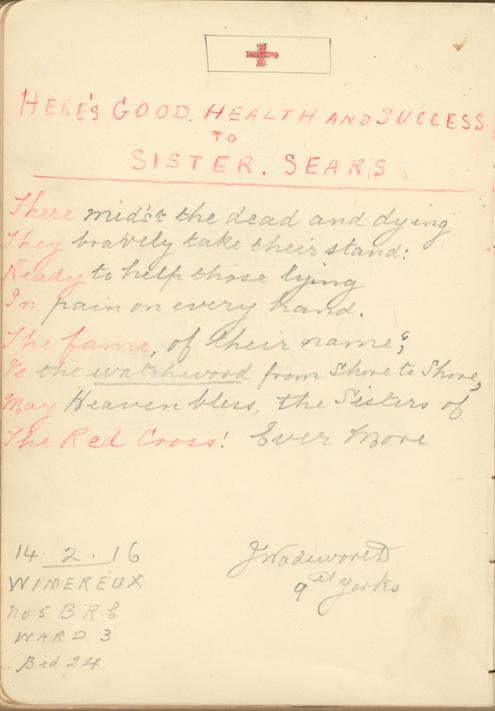 HERE'S GOOD. HEALTH AND SUCCESS
TO
SISTER. SEARS
There midst the dead and dying
They bravely take their stand:
Ready to help those lying
In pain on every hand.
The fame, of their name;
Is the watchword from Shore to Shore,
May Heaven bless, the Sisters of
The Red Cross! Ever More
14. 2. 16
WIMEREUX
No 5 B R
WARD 3
Bed 24
J Wadsworth
9th Yorks